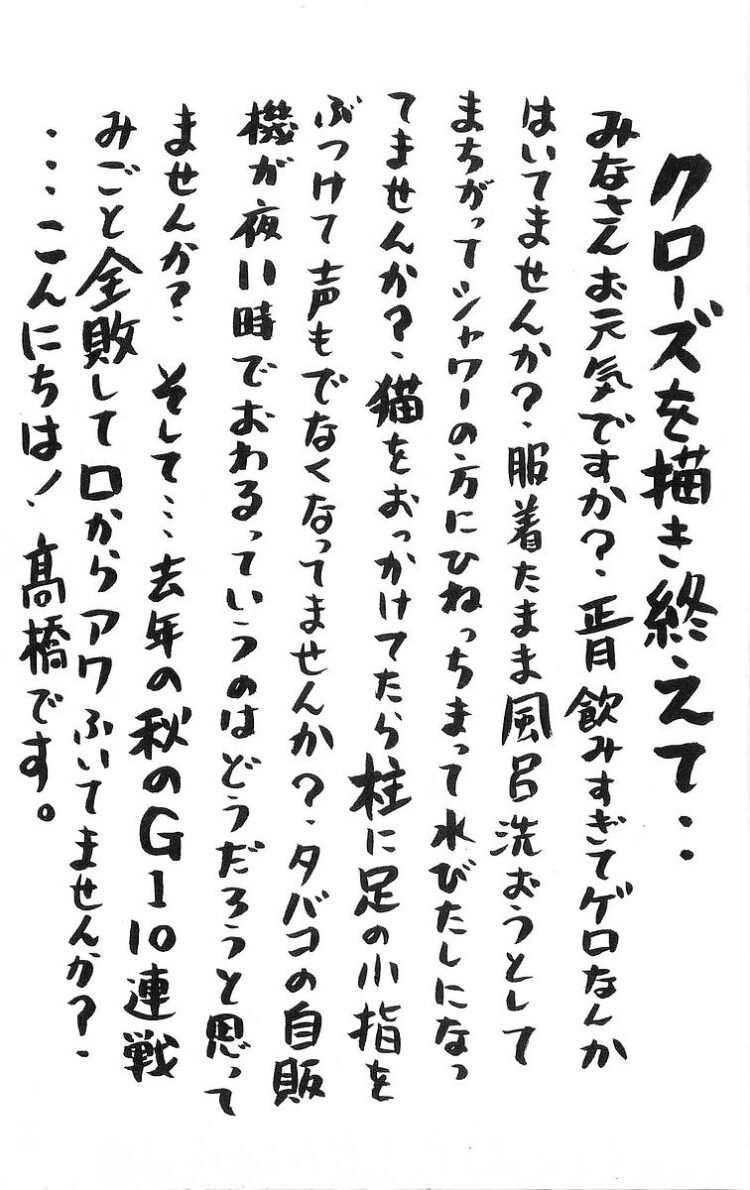 クローズを描き終えて・・
みなさんお元気ですか?・正月飲みすぎてゲロなんか
はいてませんか?・服着たまま風呂洗おうとして
まちがってシャワーの方にひねっちまって水びたしになっ
てませんか?・猫をおっかけてたら柱に足の小指を
ぶつけて声もでなくなってませんか?・タバコの自販
機が夜11時でおわるっていうのはどうだろうと思って
ませんか?・そして…去年の秋のG110連戦
みごと全敗して口からアワふいてませんか?・
・・・こんにちは!・髙橋です。